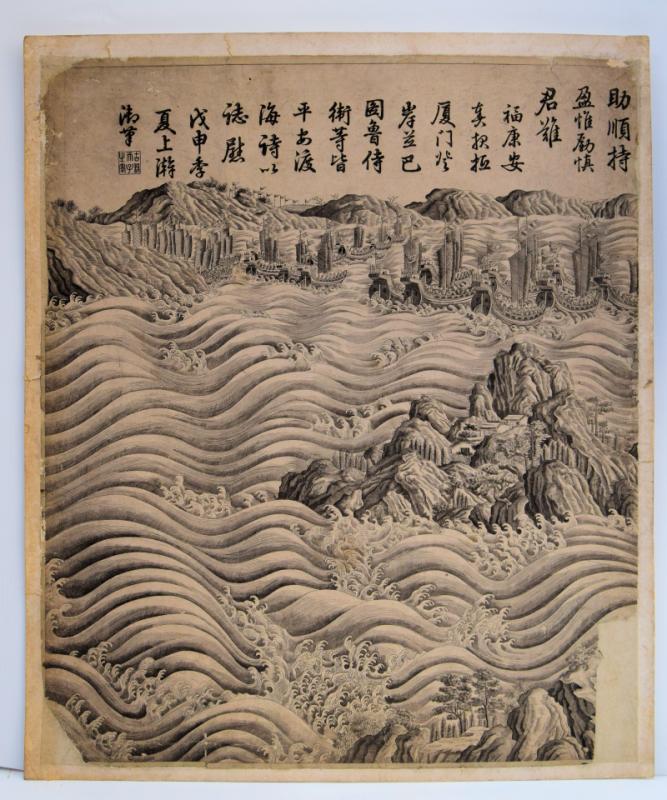 助順持
盈惟勵慎
君難
福康安
奏报抵
厦门登
岸並巴
圖魯侍
衛等皆
平安渡
海詩以
誌慰
戊申季
夏上澣
御筆